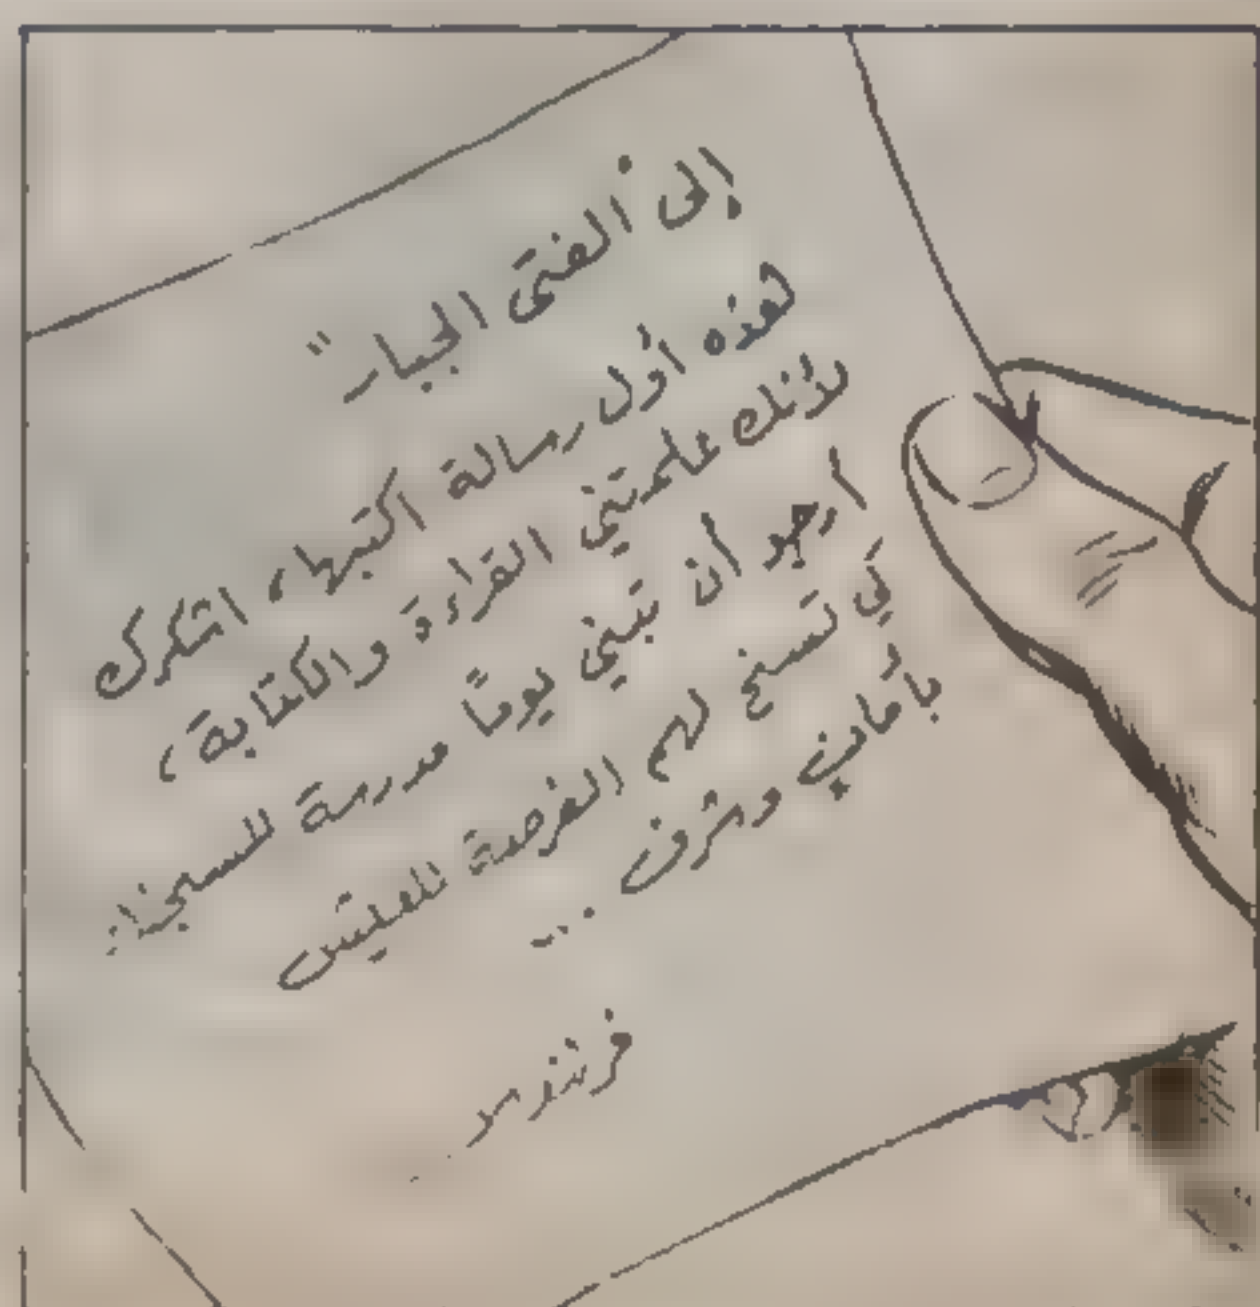 إلى "الفتى الجبار"
هذه أول رسالة اكتبها، اشكرك
لأنك علمتني القراءة والكتابة،
أرجو أن تبني يومًا مدرسة للسجناء
كي تسنح لهم الفرصة للعيش
بأمان وشرف ...